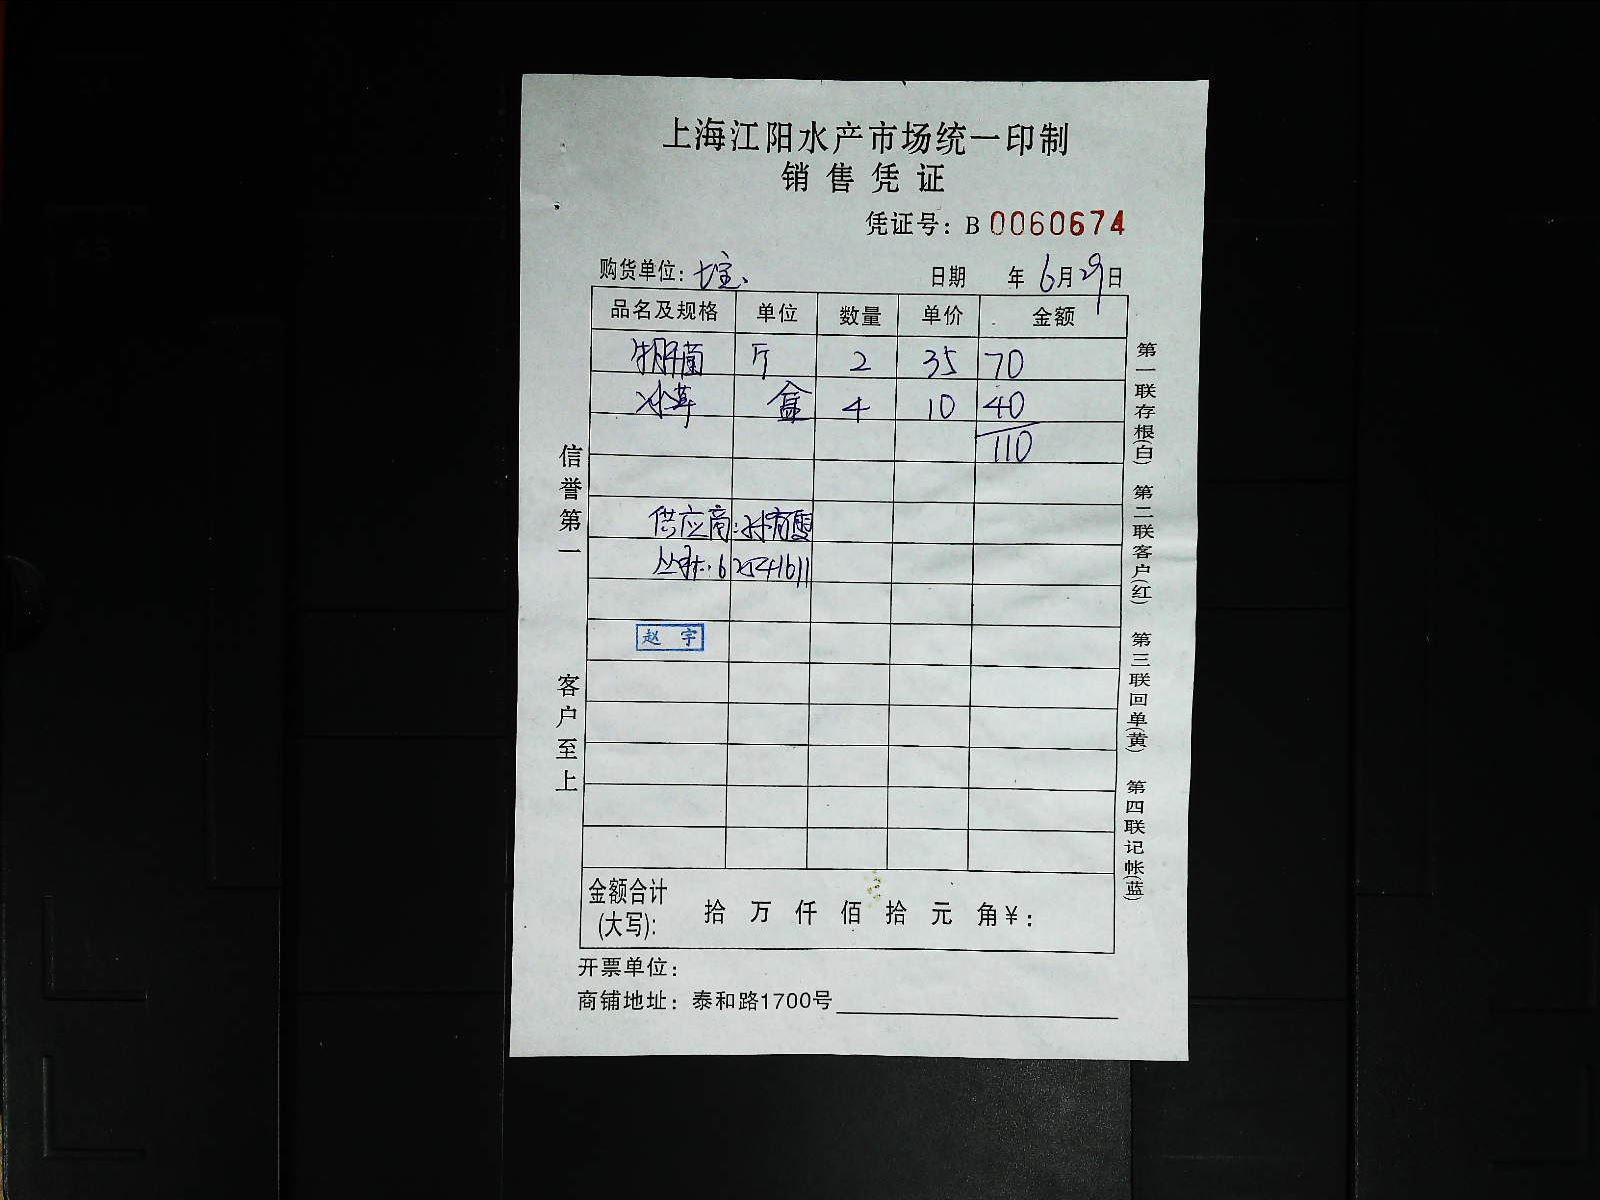 上海江阳水产市场统一印制
销售凭证
凭证号：B 0060674
购货单位： 日期 年 6月29日
品名及规格 单位 数量 单价 金额
牛肝菌 斤 2 35 70
冰草 盒 4 10 40
110
供应商：孙有雯
丛林：62541611
赵宇
金额合计
(大写)： 拾 万 仟 佰 拾 元 角￥：
开票单位：
商铺地址：泰和路1700号
信誉第一
客户至上
第一联存根(白)
第二联客户(红)
第三联回单(黄)
第四联记帐(蓝)